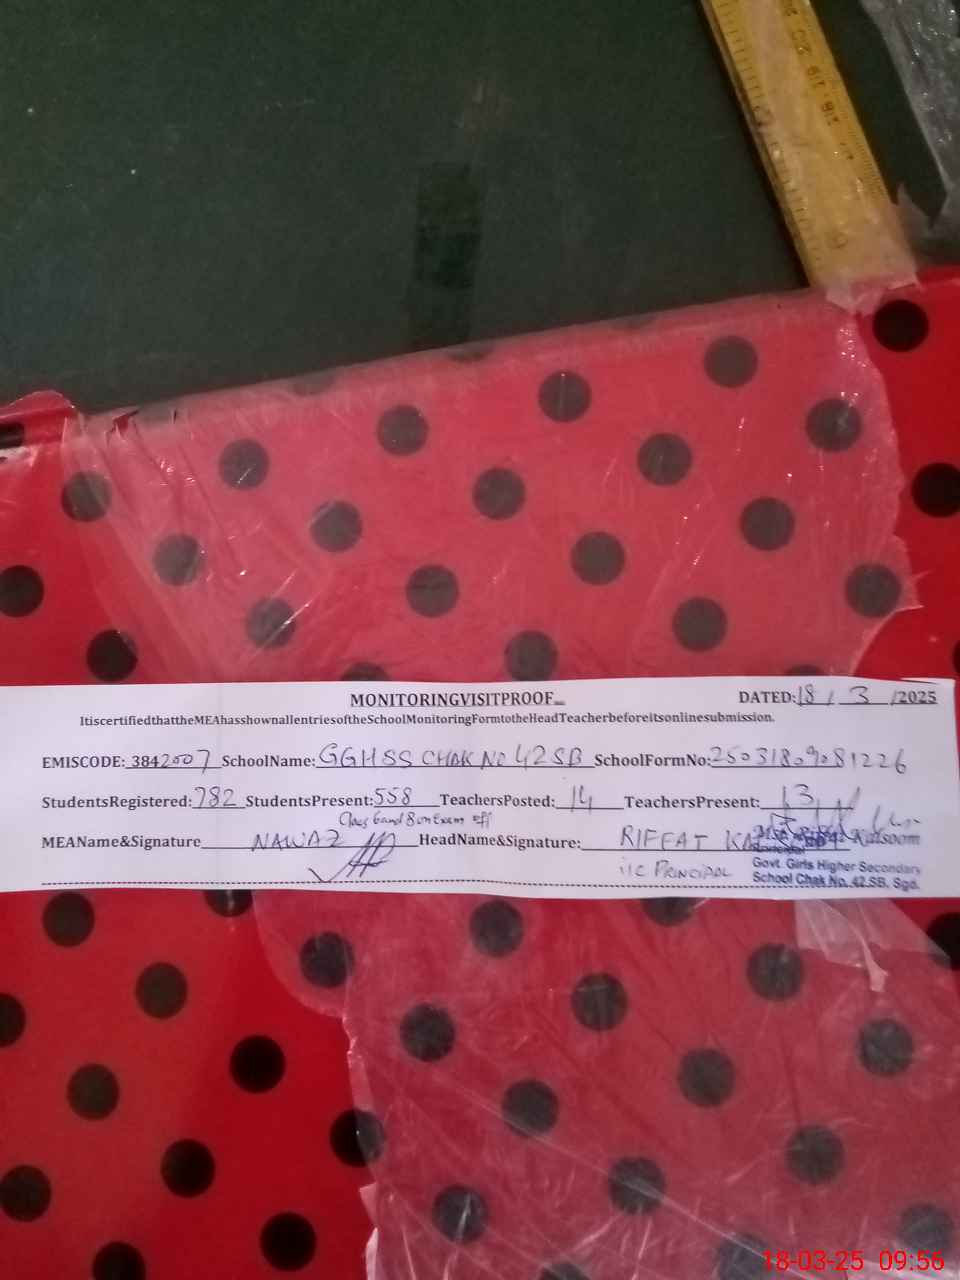 MONITORINGVISITPROOF
DATED: 18 / 3 /2025
ItiscertifiedthattheMEAhasshownallentriesoftheSchoolMonitoringFormtotheHeadTeacherbeforeitsonlinesubmission.
EMISCODE: 3842007 SchoolName: GGHSS CHAK NO 42SB SchoolFormNo: 25031809081226
StudentsRegistered: 782 StudentsPresent: 558 TeachersPosted: 14 TeachersPresent: 13
Class 6 and 8 on Exam off
MEAName&Signature NAWAZ HeadName&Signature: RIFFAT
Kalsoom
i/c PRINCIPAL
Principal
Govt. Girls Higher Secondary
School Chak No. 42 SB, Sgd.
18-03-25 09:56